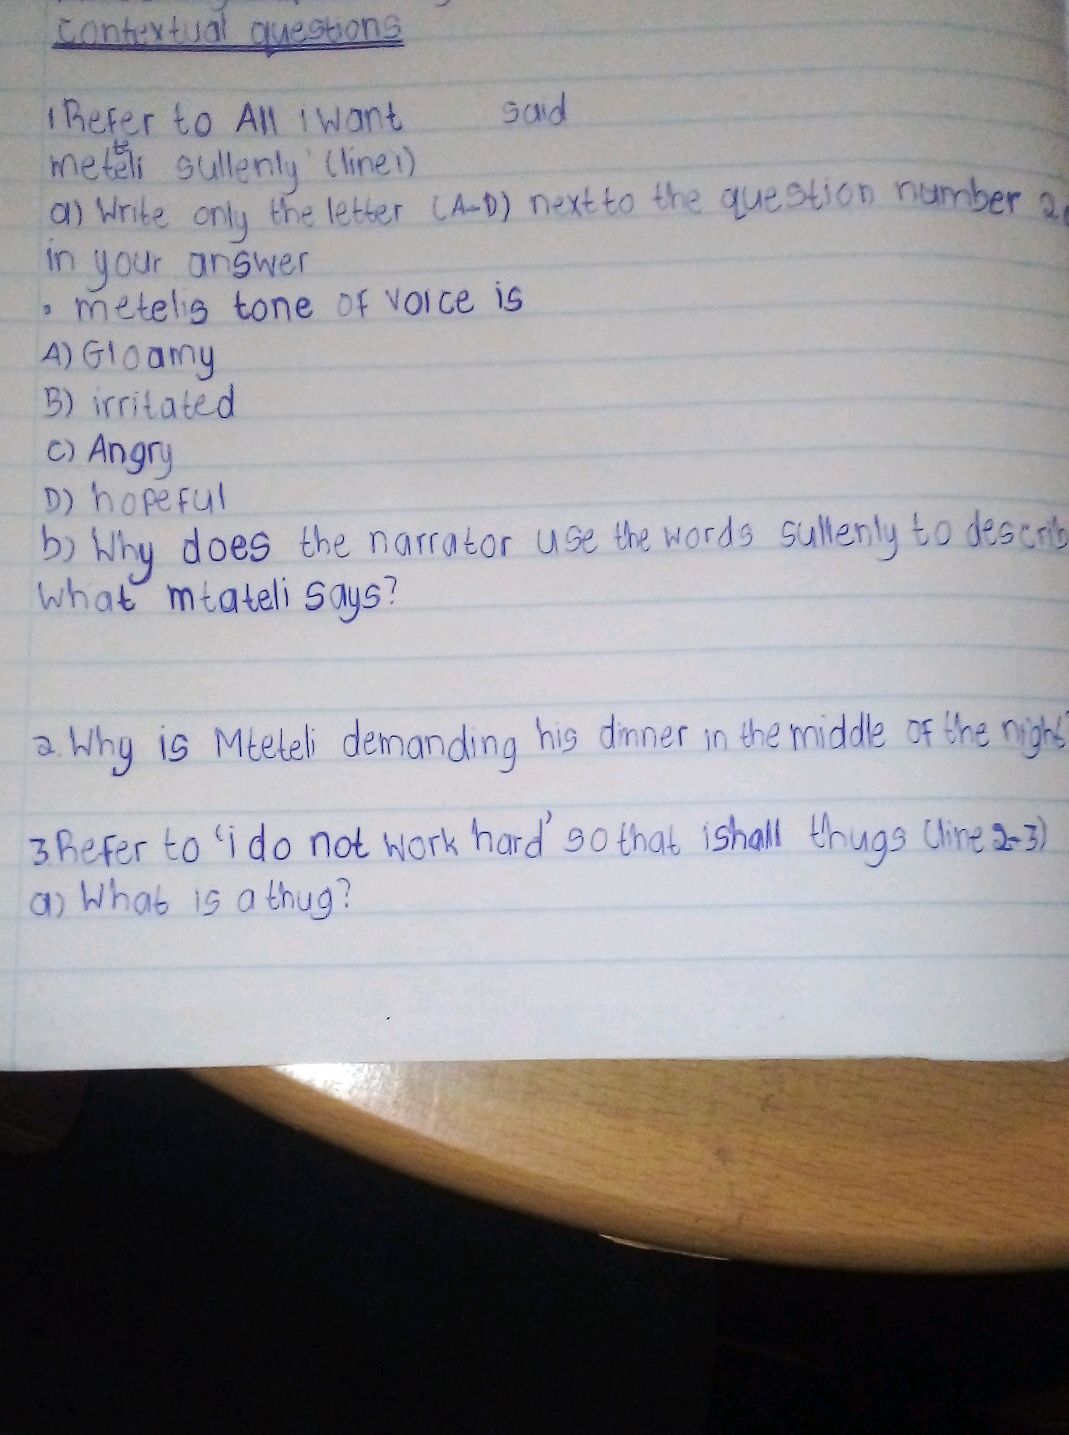 contextual questions
1 Refer to All I want said
meteli sullenly' (line1)
te
a) Write only the letter (A-D) next to the question number 2
in your answer
• metelis tone of voice is
A) Gloamy
B) irritated
C) Angry
D) hopeful
b) Why does the narrator use the words sullenly to describ
what mtateli says?
2. Why is Mteteli demanding his dinner in the middle of the night
3 Refer to 'i do not work hard' so that ishall thugs (line 2-3)
a) What is a thug?